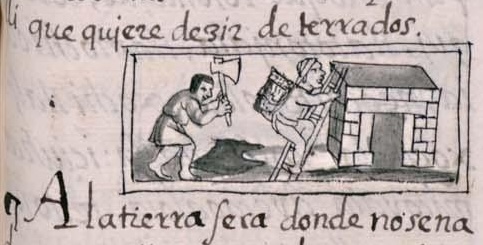 que quiere dezir de terrados.
A la tierra seca donde no se na